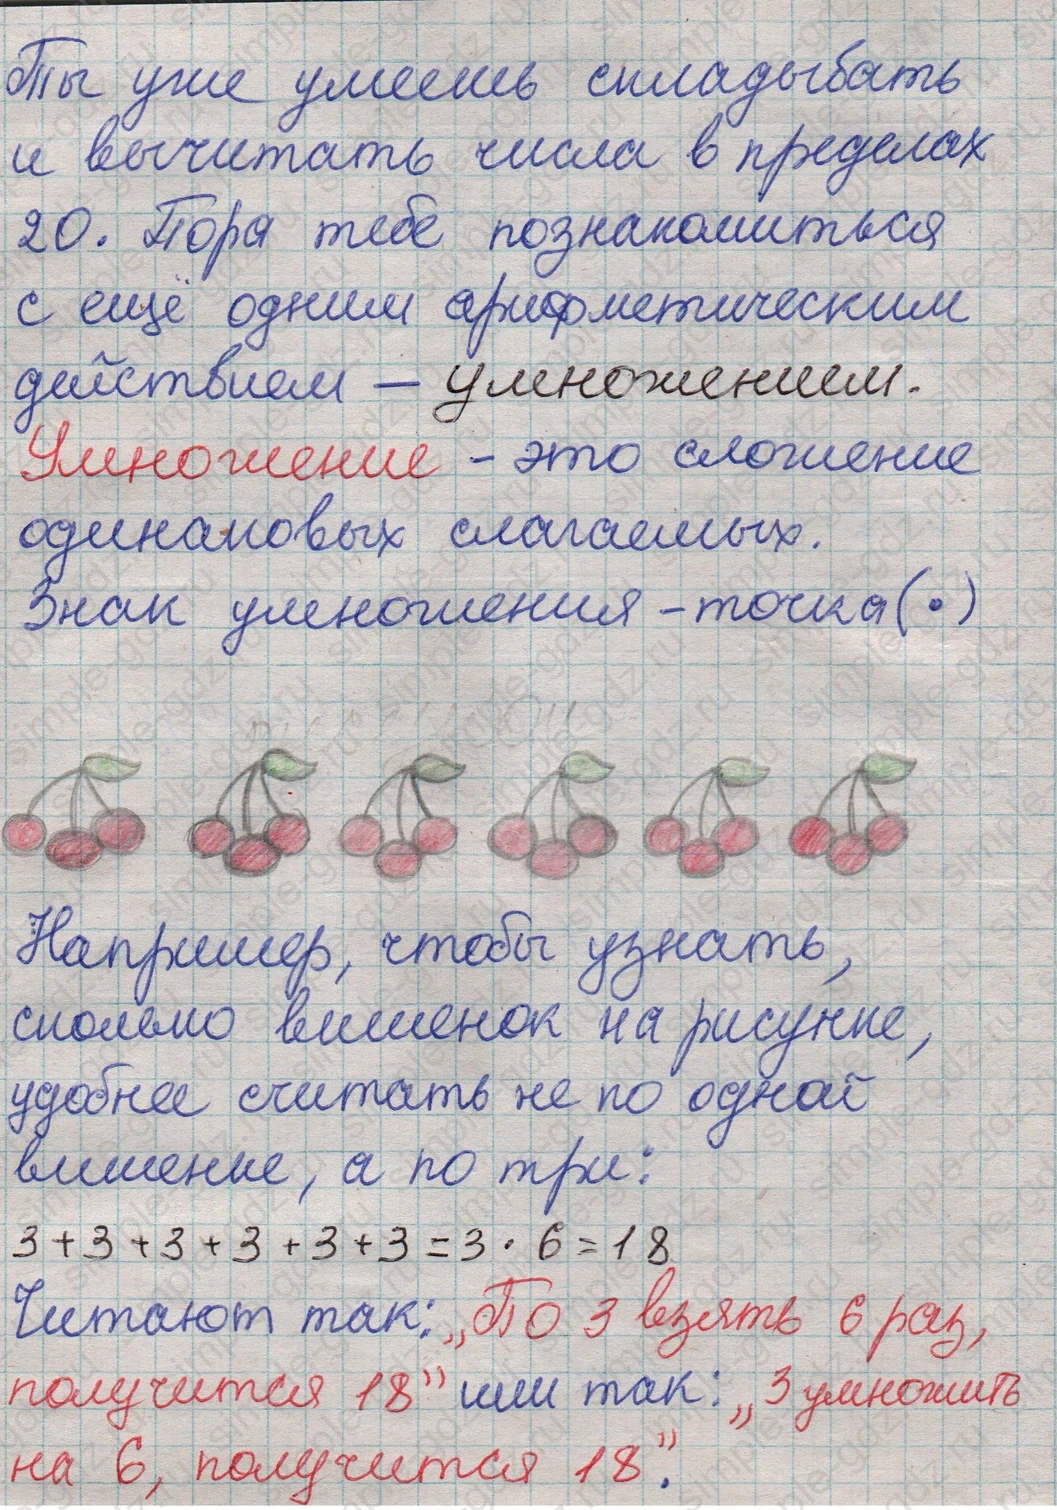 Ты уже умеешь складывать
и вычитать числа в пределах
20. Пора тебе познакомиться
с ещё одним арифметическим
действием — умножением.
Умножение - это сложение
одинаковых слагаемых.
Знак умножения - точка (•)
Например, чтобы узнать,
сколько вишенок на рисунке,
удобнее считать не по одной
вишенке, а по три:
3+3+3+3+3+3=3·6=18
Читают так: „По 3 взять 6 раз,
получится 18” или так: „3 умножить
на 6, получится 18”.
simple-gdz.ru